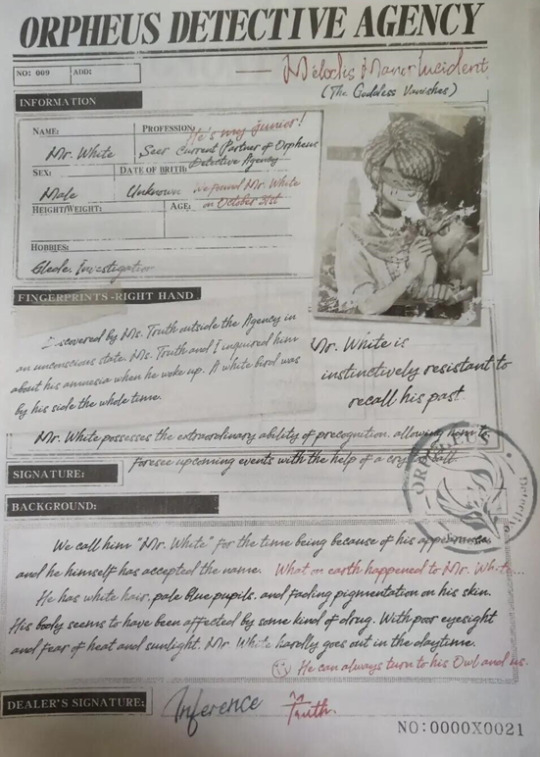 ORPHEUS DETECTIVE AGENCY
NO: 009
ADD:
Melodis Manor Incident
(The Goddess Vanishes)
INFORMATION
NAME:
Mr. White
PROFESSION:
He's my junior!
Seer Current Partner of Orpheus
Detective Agency
SEX:
Male
DATE OF BRITH:
Unknown
we found Mr. White
on October 31st
HEIGHT/WEIGHT:
AGE:
HOBBIES:
Investigation
FINGERPRINTS-RIGHT HAND
by Ms. Truth outside the Agency in
an unconscious state. Ms. Truth and I inquired him
about his amnesia when he woke up. A white bird was
by his side the whole time.
Mr. White is
instinctively resistant to
recall his past.
Mr. White possesses the extraordinary ability of precognition, allowing him to
foresee upcoming events with the help of a crystal ball
SIGNATURE:
ORPHEUS
Detective
BACKGROUND:
We call him "Mr. White" for the time being because of his appearance
and he himself has accepted the name. What on earth happened to Mr. White...
He has white hair, pale blue pupils, and fading pigmentation on his skin.
His body seems to have been affected by some kind of drug. With poor eyesight
and fear of heat and sunlight, Mr. White hardly goes out in the daytime.
He can always turn to his Owl and us.
DEALER'S SIGNATURE:
Inference
Truth.
NO:0000X0021